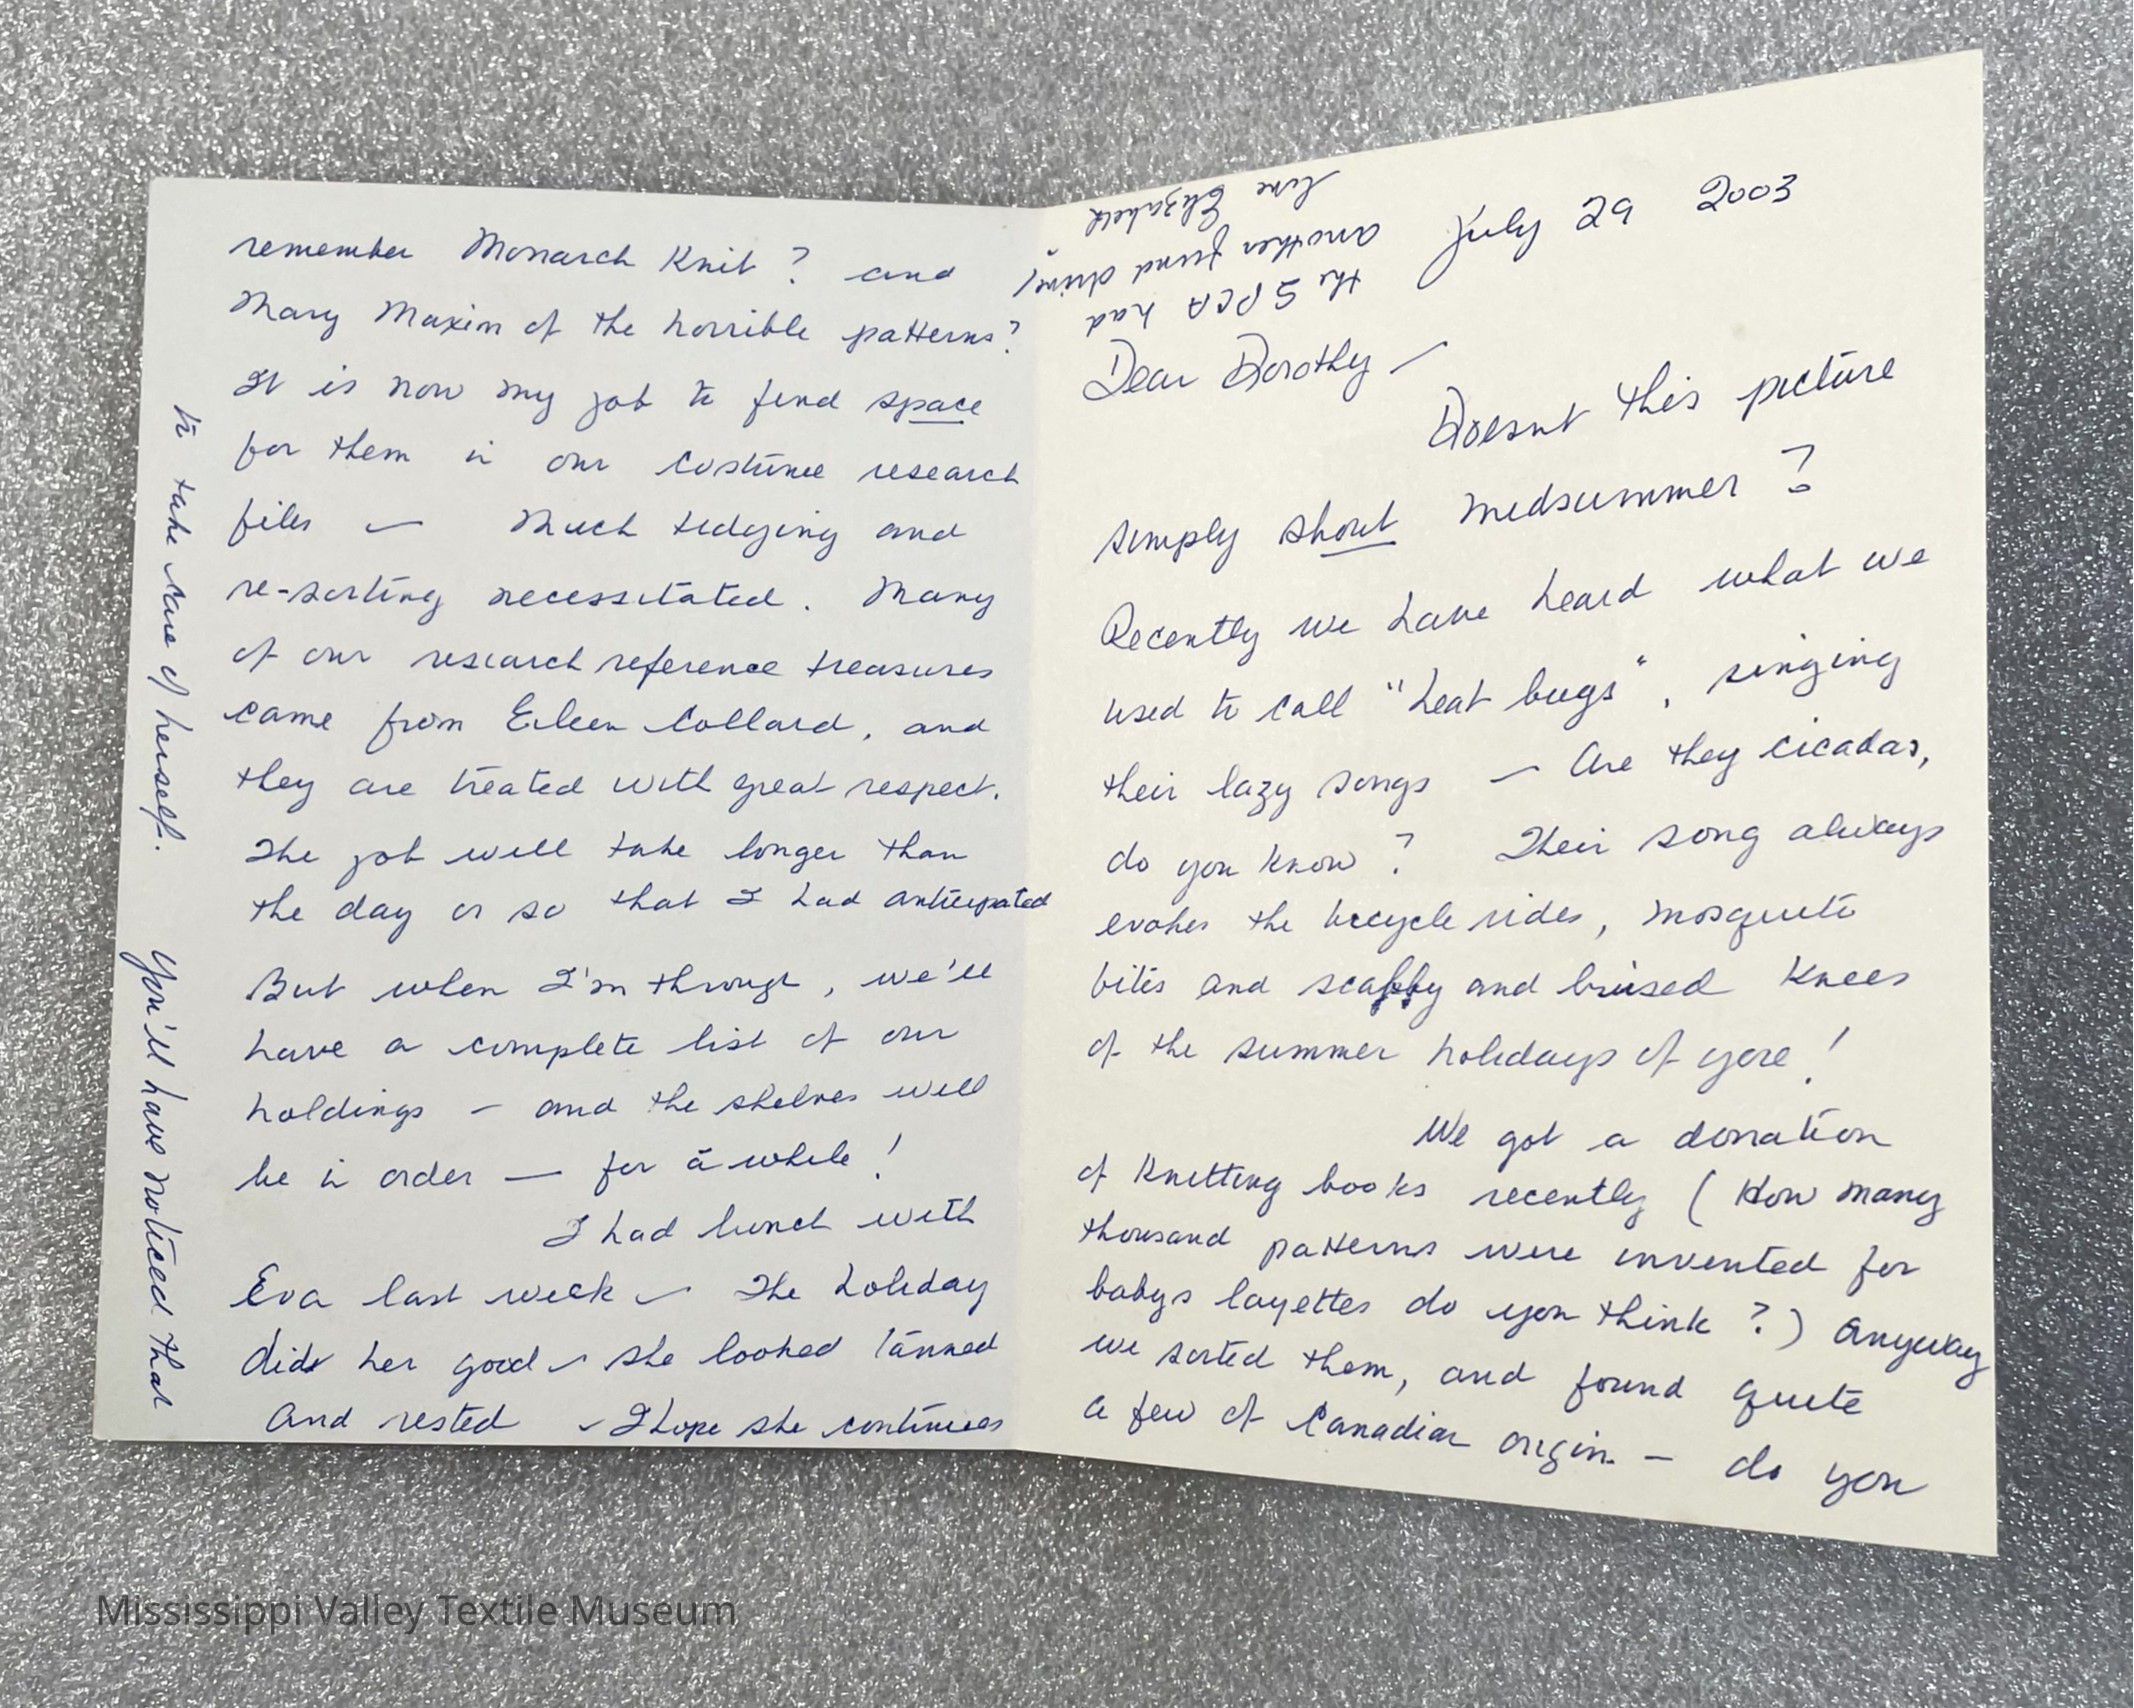 July 29 2003
Dear Dorothy —
Doesnt this picture
simply shout midsummer?
Recently we have heard what we
used to call "heat bugs", singing
their lazy songs — Are they cicadas,
do you know? Their song always
evokes the bicycle rides, mosquito
bites and scabby and bruised knees
of the summer holidays of yore!
We got a donation
of knitting books recently (How many
thousand patterns were invented for
babys layettes do you think?) Anyway
we sorted them, and found quite
a few of Canadian origin — do you
remember Monarch Knit? and
Mary Maxim of the horrible patterns?
It is now my job to find space
for them in our costume research
files — Much tidying and
re-sorting necessitated. Many
of our research reference treasures
came from Eileen Collard, and
they are treated with great respect.
The job will take longer than
the day or so that I had anticipated
But when I'm through, we'll
have a complete list of our
holdings — and the shelves will
be in order — for a while!
I had lunch with
Eva last week — The holiday
did her good — she looked tanned
and rested — I hope she continues
to take care of herself. You'll have noticed that
the SPCA had
another fund drive!
Love Elizabeth
Mississippi Valley Textile Museum